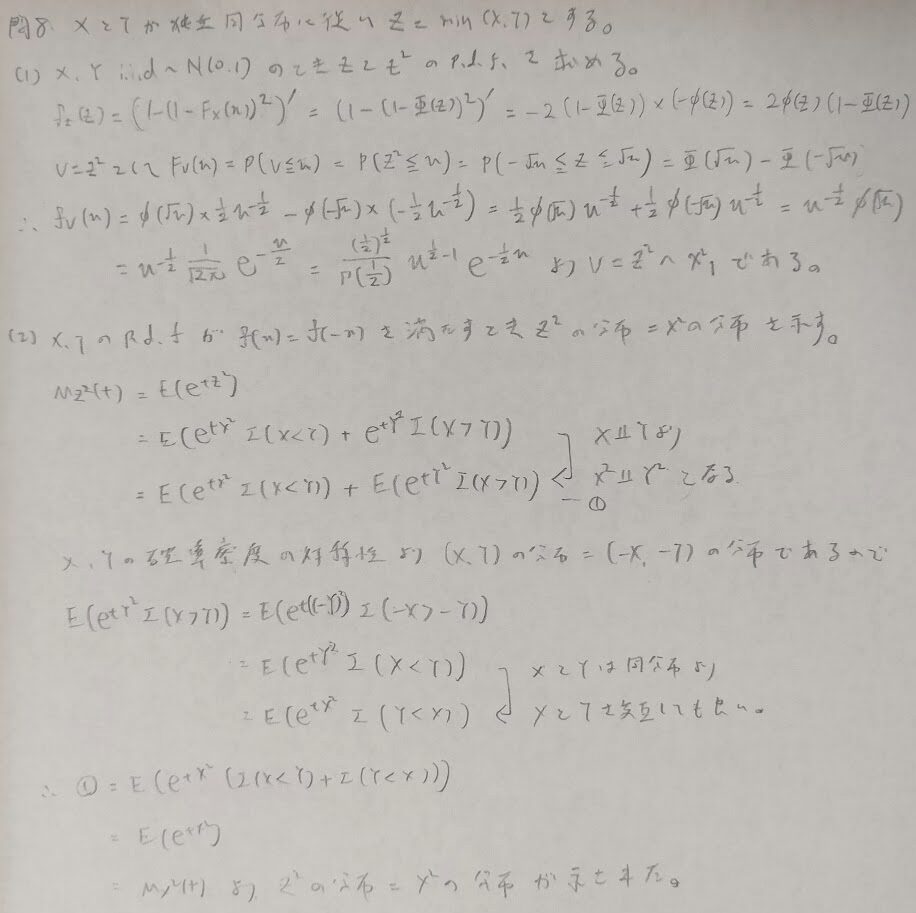 問8. XとYが独立同分布に従い Z = min(X,Y) とする。
(1) X, Y i.i.d ~ N(0.1) のときZとZ²のp.d.f.を求める。
f_z(z) = (1-(1-F_X(x))²)′ = (1-(1-Φ(z))²)′ = -2(1-Φ(z))×(-φ(z)) = 2φ(z)(1-Φ(z))
V=Z²として F_V(u) = P(V≦u) = P(Z²≦u) = P(-√u ≦ Z ≦ √u) = Φ(√u) - Φ(-√u)
∴ f_V(u) = φ(√u)×½u^{-½} - φ(-√u)×(-½u^{-½}) = ½φ(√u)u^{-½} + ½φ(-√u)u^{-½} = u^{-½}φ(√u)
= u^{-½} 1/√2π e^{-u/2} = (½)^{½}/Γ(½) u^{½-1} e^{-½u} より V=Z² ~ χ²₁ である。
(2) X,Yのp.d.fが f(x)=f(-x) を満たすときZ²の分布=X²の分布を示す。
M_{Z²}(t) = E(e^{tZ²})
= E(e^{tX²} I(X<Y) + e^{tY²} I(X>Y)) X⫫Yより
= E(e^{tX²} I(X<Y)) + E(e^{tY²} I(X>Y)) X²⫫Y²となる
―①
X,Yの確率密度の対称性より (X,Y)の分布=(-X,-Y)の分布であるので
E(e^{tY²} I(X>Y)) = E(e^{t((-Y)²)} I(-X>-Y))
= E(e^{tY²} I(X<Y)) XとYは同分布より
= E(e^{tX²} I(Y<X)) XとYを交互しても良い。
∴ ① = E(e^{tX²} (I(X<Y)+I(Y<X)))
= E(e^{tX²})
= M_{X²}(t) より Z²の分布=X²の分布が示せました。